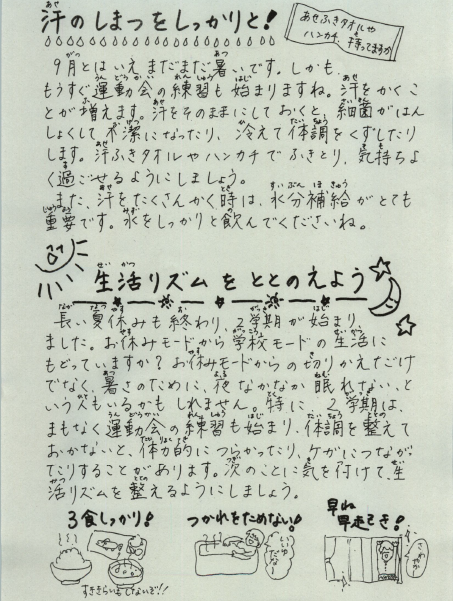 汗のしまつをしっかりと!
あせふきタオルや
ハンカチ、持ってますか
9月とはいえまだまだ暑いです。しかも、
もうすぐ運動会の練習も始まりますね。汗をかくこ
とが増えます。汗をそのままにしておくと、細菌がはん
しょくして不潔になったり、冷えて体調をくずしたり
します。汗ふきタオルやハンカチでふきとり、気持ちよ
く過ごせるようにしましょう。
また、汗をたくさんかく時は、水分補給がとても
重要です。水をしっかりと飲んでくださいね。
生活リズムをととのえよう
長い夏休みも終わり、2学期が始まり
ました。お休みモードから学校モードの生活に
もどっていますか?お休みモードからの切りかえだけ
でなく、暑さのために、夜なかなか眠れない、と
いう人もいるかもしれません。特に、2学期は、
まもなく運動会の練習も始まり、体調を整えて
おかないと、体力的につらかったり、ケガにつなが
たりすることがあります。次のことに気を付けて、生
活リズムを整えるようにしましょう。
3食しっかり!
つかれをためない!
早ね
早起き!
すききらいをしないぞ!!
いいゆ
だな~
さわやか